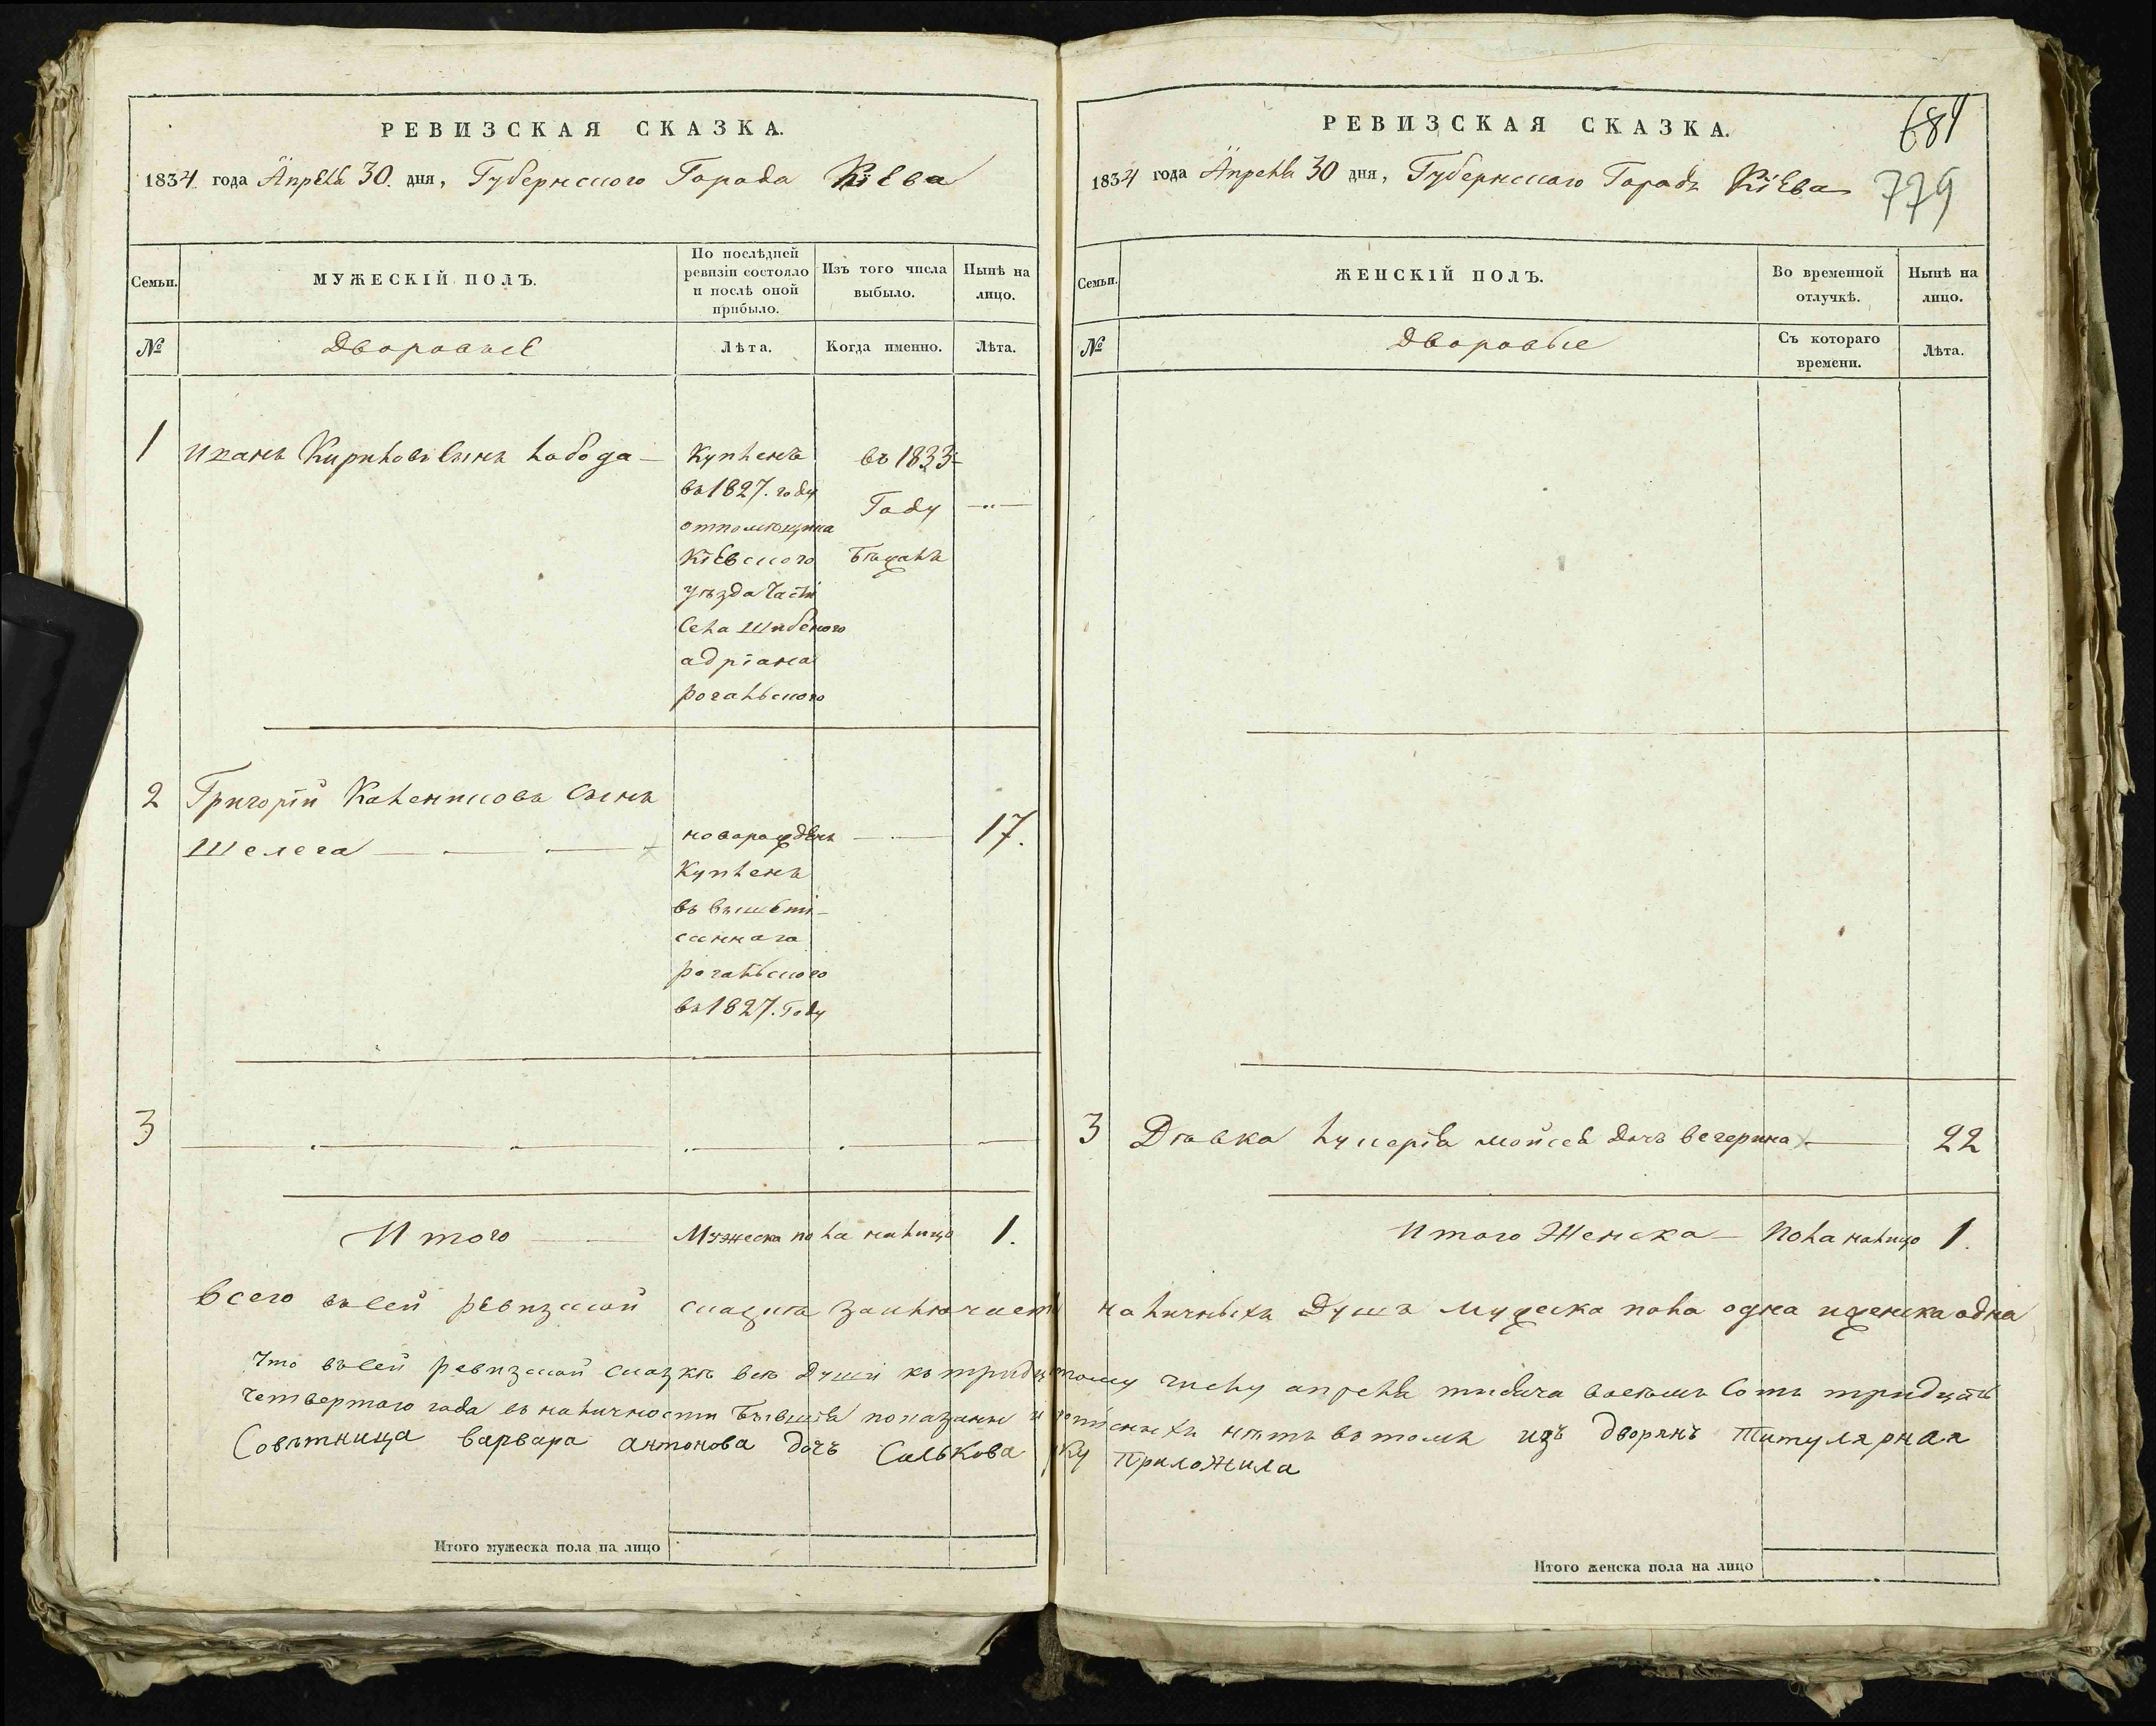 РЕВИЗСКАЯ СКАЗКА.
1834 года Апрѣля 30. дня, Губернского Города Кіева
Семьи.
МУЖЕСКІЙ ПОЛЪ.
По послѣдней
ревизіи состояло
и послѣ оной
прибыло.
Изъ того числа
выбыло.
Нынѣ на
лицо.
№
Дворовые
Лѣта.
Когда именно.
Лѣта.
1
Иванъ Кириловъ сынъ лобода
купленъ
въ 1827. году
отпомещика
Кіевского
уѣзда Части
Села Шибеного
адріана
рогальского
въ 1833
Году
Бѣжалъ
2
Григорій Калениковъ Сынъ
Шелега
новорожденъ
17.
Купленъ
въ вышепи-
санного
рогальского
въ 1827. Году
3
Итого
Мужеска пола налицо
1.
РЕВИЗСКАЯ СКАЗКА.
684
1834 года Апреля 30 дня, Губернского Города Кіева
779
Семьи.
ЖЕНСКІЙ ПОЛЪ.
Во временной
отлучкѣ.
Нынѣ на
лицо.
№
Дворовые
Съ котораго
времени.
Лѣта.
3
Дѣвка лукерія мойсея дочъ вечерина
22
Итого Женска пола налицо
1.
Всего въсей ревизской сказкѣ заключаетъ наличныхъ Душъ мужеска пола одна иженска одна
Что въсей ревизской сказкѣ все души къ тридцатому числу апреля тисяча восемь Сотъ тридцать
Четвертого года въ наличности Бывшія показаны и прописныхъ нѣтъ втомъ изъ дворянъ титулярная
Совѣтница варвара антонова дочъ Салькова руку Приложила
Итого мужеска пола на лицо
Итого женска пола на лицо